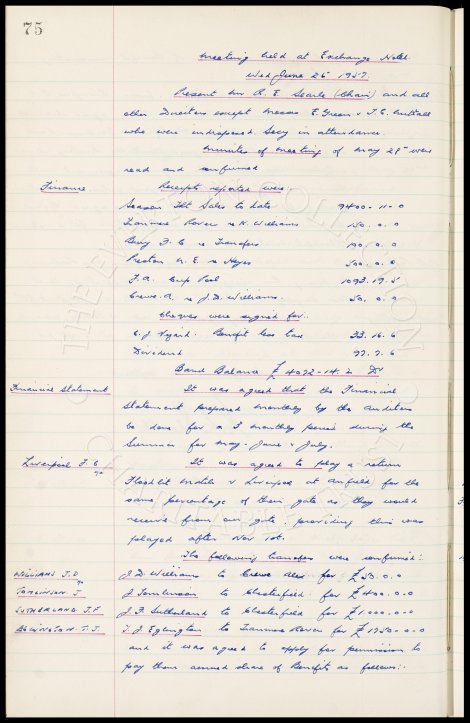 75
Meeting held at Exchange Hotel
Wed June 26th 1957.
Present Mr R. E. Searle (Chair) and all
other Directors except Messrs E. Green & T.C. Nuttall
who were indisposed. Secy in attendance.
Minutes of meeting of May 29th were
read and confirmed
Finance
Receipts reported were:
Season Tkt Sales to date 9400-11-0
Tranmere Rovers re K. Williams 150.0.0
Bury F.C. re Transfers
Preston N.E. re Hayes 500.0.0
F.A. Cup Pool 1093.19.5
Crewe A. re J.D. Williams. 50.0.0
Cheques were signed for.
Benefit less Tax 33.16.6
Dividend 97.7.6
Bank Balance £4072-14.2 Dr
Financial Statement
It was agreed that the Financial
Statement prepared monthly by the auditors
be done for a 3 monthly period during the
Summer for May-June & July.
Liverpool F.C.
It was agreed to play a return
Floodlit Match v Liverpool at Anfield for the
same percentage of their gate as they would
receive from our gate, providing this was
played after Nov 1st.
The following transfers were confirmed:
WILLIAMS J.D
J.D. Williams to Crewe Alex for £50.0.0
TOMLINSON J
J Tomlinson to Chesterfield for £400.0.0
SUTHERLAND J.F.
J.F. Sutherland to Chesterfield for £1.000.0.0
EGLINGTON T.J.
T.J. Eglington to Tranmere Rovers for £1950-0-0
and it was agreed to apply for permission to
pay them accrued share of Benefits as follows:-